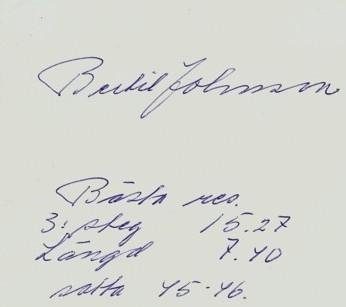 Bertil Johnsson
Bästa res.
3: steg 15.27
Längd 7.40
satta 45-46.